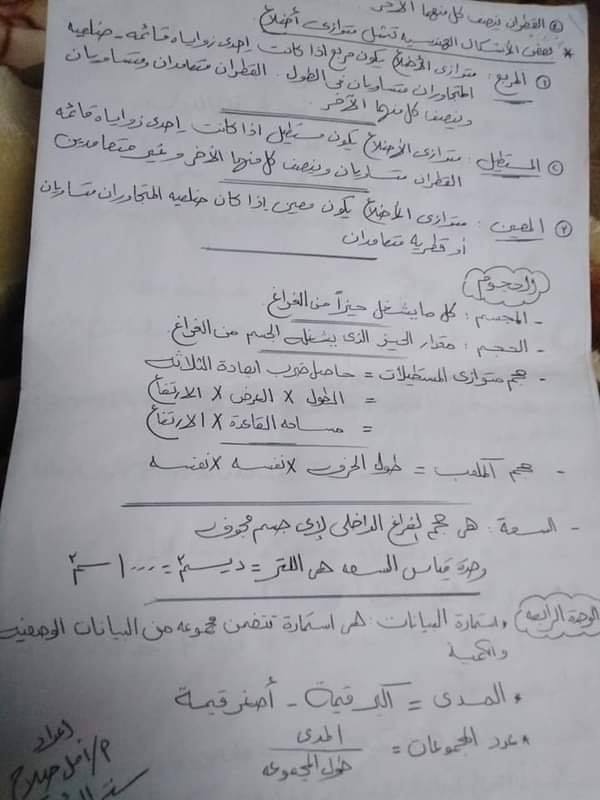 ⑤ القطران ينصف كل منهما الآخر
* بعض الأشكال الهندسية تمثل متوازى أضلاع
① المربع : متوازى الأضلاع يكون مربع اذا كانت إحدى زواياه قائمه - ضلعيه
المتجاوران متساويان فى الطول . القطران متعامدان ومتساويان
وينصف كل منهما الآخر .
② المستطيل : متوازى الأضلاع يكون مستطيل اذا كانت إحدى زواياه قائمه
القطران متساويان وينصف كل منهما الآخر وغير متعامدين
③ المعين : متوازى الأضلاع يكون معين إذا كان ضلعيه المتجاوران متساويان
أو قطريه متعامدان
الحجوم
- المجسم : كل ما يشغل حيزاً من الفراغ .
- الحجم : مقدار الحيز الذى يشغله الجسم من الفراغ .
- حجم متوازى المستطيلات = حاصل ضرب ابعاده الثلاثه
= الطول × العرض × الارتفاع
= مساحه القاعدة × الارتفاع
- حجم المكعب = طول الحرف × نفسه × نفسه
- السعة : هى حجم الفراغ الداخلى لإى جسم مجوف
وحدة قياس السعه هى اللتر = ديسم٣ = ١٠٠٠ سم٣
الوحدة الرابعه
* استمارة البيانات : هى استمارة تتضمن مجموعه من البيانات الوصفيه
والكميه
* المدى = أكبر قيمة - أصغر قيمة
* عدد المجموعات = المدى / طول المجموعه
اعداد
م/ أمل صلاح